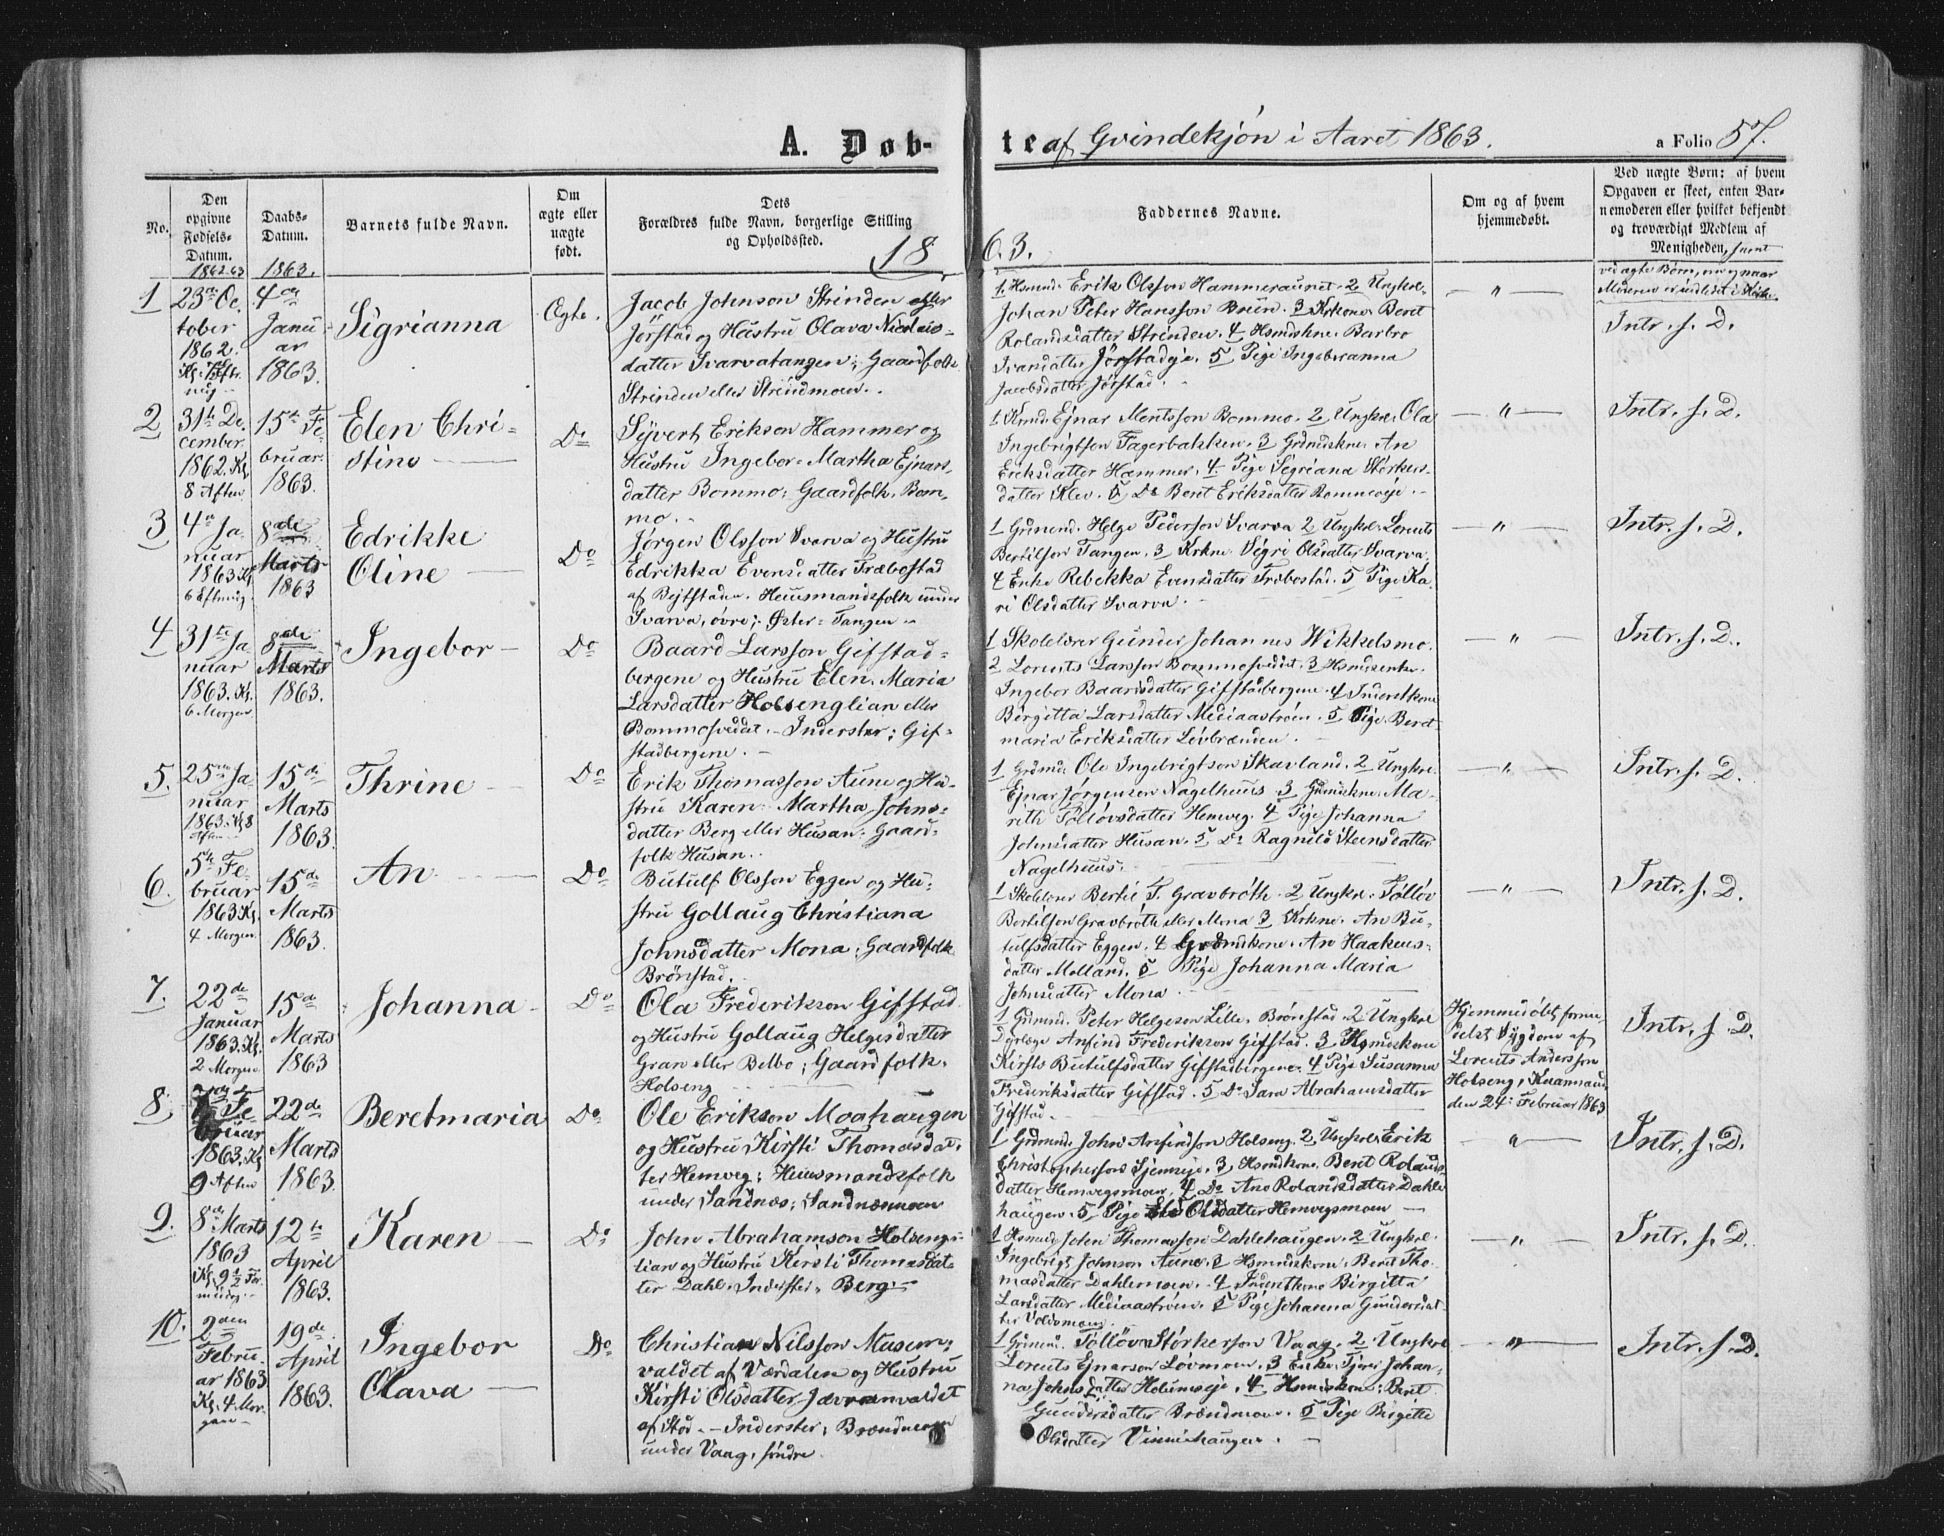 A. Døb-
te af Qvindekjön i Aaret 1863.
a Folio 57.
No.
Den opgivne Fødsels-Datum.
Daabs-Datum.
Barnets fulde Navn.
Om ægte eller uægte født.
Dets Forældres fulde Navn, borgerlige Stilling og Opholdssted.
Faddernes Navne.
Om og af hvem hjemmedøbt.
Ved uægte Børn: af hvem Opgaven er skeet, enten Barnemoderen eller hvilket bekjendt og troværdigt Medlem af Menigheden, samt
1862.63
1863.
18
63.
1
23de Oc
tober
1862.
4de
Janu
ar
1863.
Sigrianna
Ægte.
Jacob Johnson Strinden eller
Jørstad og Hustru Olava Nicolais-
datter Svarvatangen; Gaardfolk
Strinden eller Strindmoen.
1 Hsmd. Erik Olsson Hammeraunet. 2 Ungkl.
Johan Peter Hansson Brun. 3 Krkone Beret
Rolandsdatter Strinden. 4 Hsmdskne. Barbro
Ivarsdatter Jørstadeje. 5 Pige Ingeberanna
Jacobsdatter Jørstad.
— " —
Intr. f. D.
2
31te De
cember
1862. Kl
8 Aften
15de Fe
bruar
1863.
Elen Chri-
stine
Do
Sivert Erikson Hammer og
Hustru Ingebor-Martha Ejnars-
datter Bommo; Gaardfolk. Bom-
mo.
Ejnar Mentsson Bommo. 2 Ungkl. Ola
Ingebrigtson Fagerbakken. 3 Grdmdskne. An
Eriksdatter Hammer. 4 Pige Sigriana Størkers-
datter Klev. 5 Do Berit Eriksdatter Bommoeje.
— " —
Intr. f. D.
3
4de Ja
nuar
1863 Kl
6 Eftmdg.
8de
Marts
1863
Edrikke
Oline
Do
Jørgen Olsson Svarva og Hustru
Edrikka Evensdatter Træbostad
af Bejtstaden. Huusmandsfolk under
Svarva, övre; Øster-Tangen
1 Helge Pederson Svarva 2 Ungkl. Lorents
Bertilson Tangen. 3 Krkne. Sigri Olsdatter Svarva.
4 Enke Rebekka Evensdatter Træbostad. 5 Pige Ka
ri Olsdatter Svarva.
— " —
Intr. f. D.
4
31te Ja
nuar
1863. Kl.
6 Morgen
8de
Marts
1863.
Ingebor
Do
Baard Larsson Gifstad-
bergene og Hustru Elen-Maria
Larsdatter Holsenglian eller
Bommosveddet. Inderster; Gif-
stadbergene.
1 Skolelærer Gunder Johannes Wikkelsmo.
2 Lorents Larsson Bommosveddet. 3 Hsmdsenke
Ingebor Baardsdatter Gifstadbergene. 4 Inderstkone
Birgitta Larsdatter Mediaaströen. 5 Pige Beret
maria Eriksdatter Lövbrænden.
— " —
Intr. f. D.
5.
25de Ja
nuar
1863. Kl 8
Aften
15de
Marts
1863.
Thrine
Do
Erik Thomasson Aune og Hu-
stru Karen-Martha Johns-
datter Berg eller Husan; Gaard-
folk Husan.
1 Grdmd. Ole Ingebrigtson Skavland. 2 Ungkl.
Ejnar Jørgenson Nagelhuus. 3 Grdmdskne. Ma-
rith Tøllövsdatter Hemveg. 4 Pige Johanna
Johnsdatter Husan. 5 Do Ragnild Steensdatter
Nagelhuus.
— " —
Intr. f. D.
6.
5te Fe
bruar
1863. Kl.
4 Morgen.
15de
Marts
1863.
An
Do
Butulf Olsson Eggen og Hu-
stru Gollaug Christiana
Johnsdatter Mona; Gaardfolk
Brönstad.
1 Skolelærer Bertil T. Gravbröth. 2 Ungkl. Tøllöv
Bertilson Gravbröth eller Mona 3 Krkne. An Bu-
tulfsdatter Eggen. 4 Grdmdskone. An Haakens-
datter Molland. 5 Pige Johanna Maria
Johnsdatter Mona.
— " —
Intr. f. D.
7.
22de
Januar
1863. Kl.
2 Morgen
15de
Marts
1863
Johanna
Do
Ola Frederikson Gifstad
og Hustru Gollaug Helgesdatter
Gran eller Belbo; Gaardfolk.
Holseng
1 Grdmd. Peter Helgeson Lille-Brönstad. 2 Ungkl
Dyrlæge Anfind Frederikson Gifstad. 3 Hsmdskone
Kirsti Butulfsdatter Gifstadbergene. 4 Pige Susanna
Frederiksdatter Gifstad. 5 Do Sara Abrahamsdatter
Gifstad.
Hjemmedöbt forme-
delst Sygdom af
Lorents Andersson
Holseng, Kaarmand
den 24. Februar 1863
Intr. f. D.
8.
Fe
bruar
1863. Kl
9 Aften
22de
Marts
1863.
Beretmaria
Do
Ole Erikson Moahaugen
og Hustru Kirsti Thomasdat-
ter Hemveg; Huusmandsfolk
under Sandnæs; Sandnæsmoen
1 Grdmd. John Arnfindson Holseng. 2 Ungkl. Erik
Christopherson Sjemseje. 3 Hsmdkone. Beret Rolands-
datter Hemvegsmoen. 4 Do Ane Rolandsdatter Dahle
haugen. 5 Pige Olsdatter Hemvegsmoen
— " —
Intr. f. D.
9.
8de Marts
1863
Kl. 9½ For
middag
12te
April
1863.
Karen
Do
John Abrahamson Holseng-
lian og Hustru Kersti Thomasdat-
ter Dahl. Inderster; Berg
1 Hsmd. John Thomasson Dahlehaugen. 2 Ungkl.
Ingebrigt Johnson Aune. 3 Hsmdskone. Beret Tho-
masdatter Dahlemoen. 4 Inderstkone Birgitta
Larsdatter Mediaaströen. 5 Pige Johanna Gundersdat-
ter Voldsmoen.
— " —
Intr. f. D.
10.
2den
Febru-
ar 1863
Kl. 4 Mor-
gen
19de
April
1863.
Ingebor
Olava
Do
Christian Nilsson Musem-
valdet af Værdalen og Hustru
Kirsti Olsdatter Jævranvaldet
af Stod. Inderster; Brændmoen
under Vaag, söndre.
1 Grdmd. Tøllöv Størkerson Vaag. 2 Ungkl
Lorents Ejnarson Lövmoen. 3 Enke Johan-
na Johnsdatter Holumseje. 4 Hsmdskone; Beret
Gundersdatter Brændmoen. 5 Pige Birgitte
Olsdatter Vinniehaugen.
— " —
Intr. f. D.